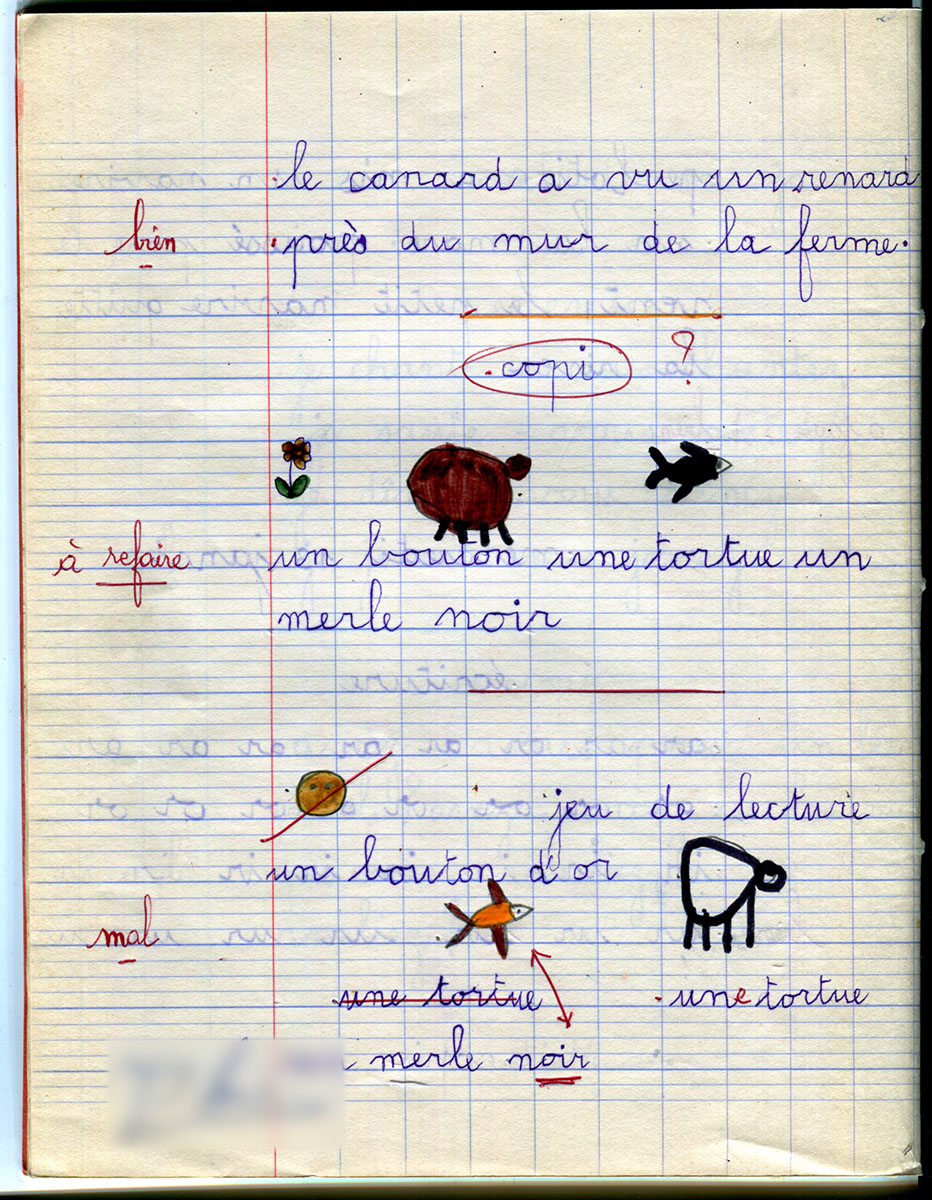 le canard a vu un renard
bien
près du mur de la ferme.
copi ?
à refaire
un bouton une tortue un
merle noir
jeu de lecture
un bouton d'or
mal
une tortue
une tortue
merle noir